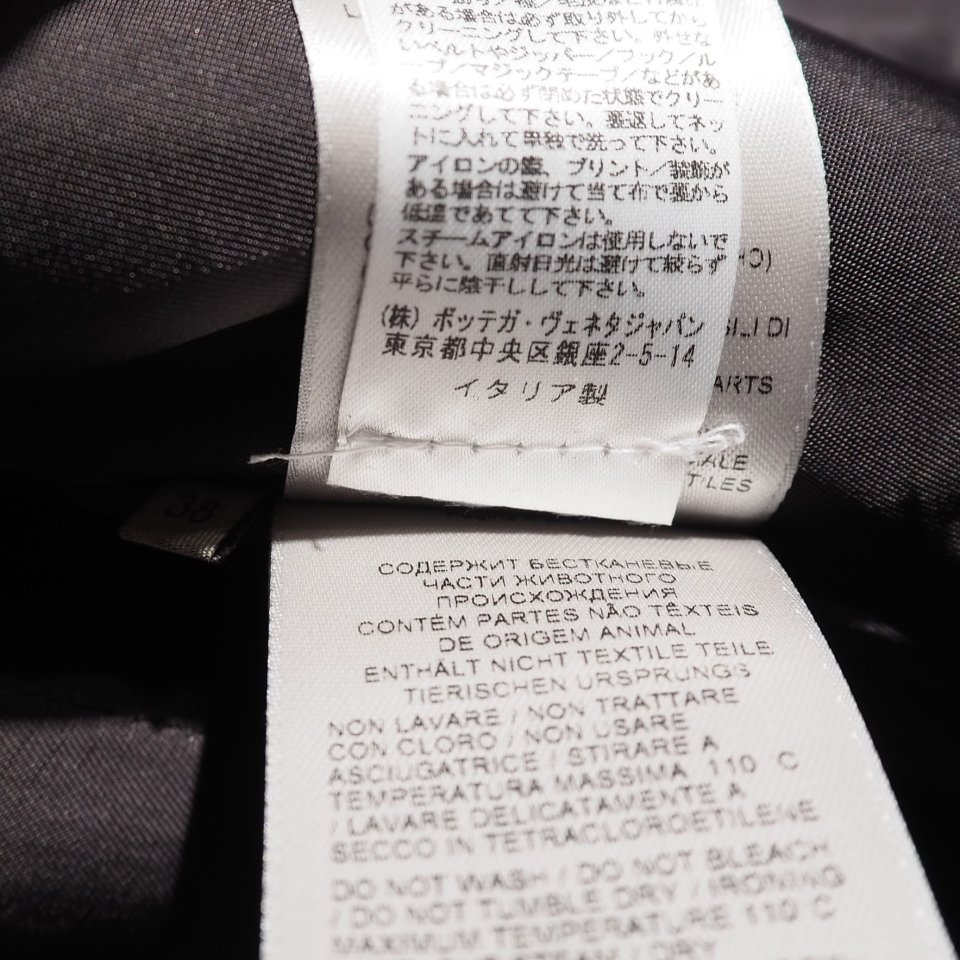 がある場合は必ず取り外してから
クリーニングして下さい。外せな
いベルトやジッパー／フック／ル
ープ／マジックテープ／などがあ
る場合は必ず閉めた状態でクリー
ニングして下さい。裏返してネッ
トに入れて単独で洗って下さい。
アイロンの際、プリント／装飾が
ある場合は避けて当て布で裏から
低温であてて下さい。
スチームアイロンは使用しないで
下さい。直射日光は避けて絞らず
平らに陰干しして下さい。
(株) ボッテガ・ヴェネタジャパン
東京都中央区銀座2-5-14
イタリア製
HO)
SILI DI
ARTS
MALE
TILES
38
СОДЕРЖИТ БЕСТКАНЕВЫЕ
ЧАСТИ ЖИВОТНОГО
ПРОИСХОЖДЕНИЯ
CONTÉM PARTES NÃO TÊXTEIS
DE ORIGEM ANIMAL
ENTHÄLT NICHT TEXTILE TEILE
TIERISCHEN URSPRUNGS
NON LAVARE / NON TRATTARE
CON CLORO / NON USARE
ASCIUGATRICE / STIRARE A
TEMPERATURA MASSIMA 110 C
/ LAVARE DELICATAMENTE A
SECCO IN TETRACLOROETILENE
DO NOT WASH / DO NOT BLEACH
/ DO NOT TUMBLE DRY / IRONING
MAXIMUM TEMPERATURE 110 C
STEAM / DRY